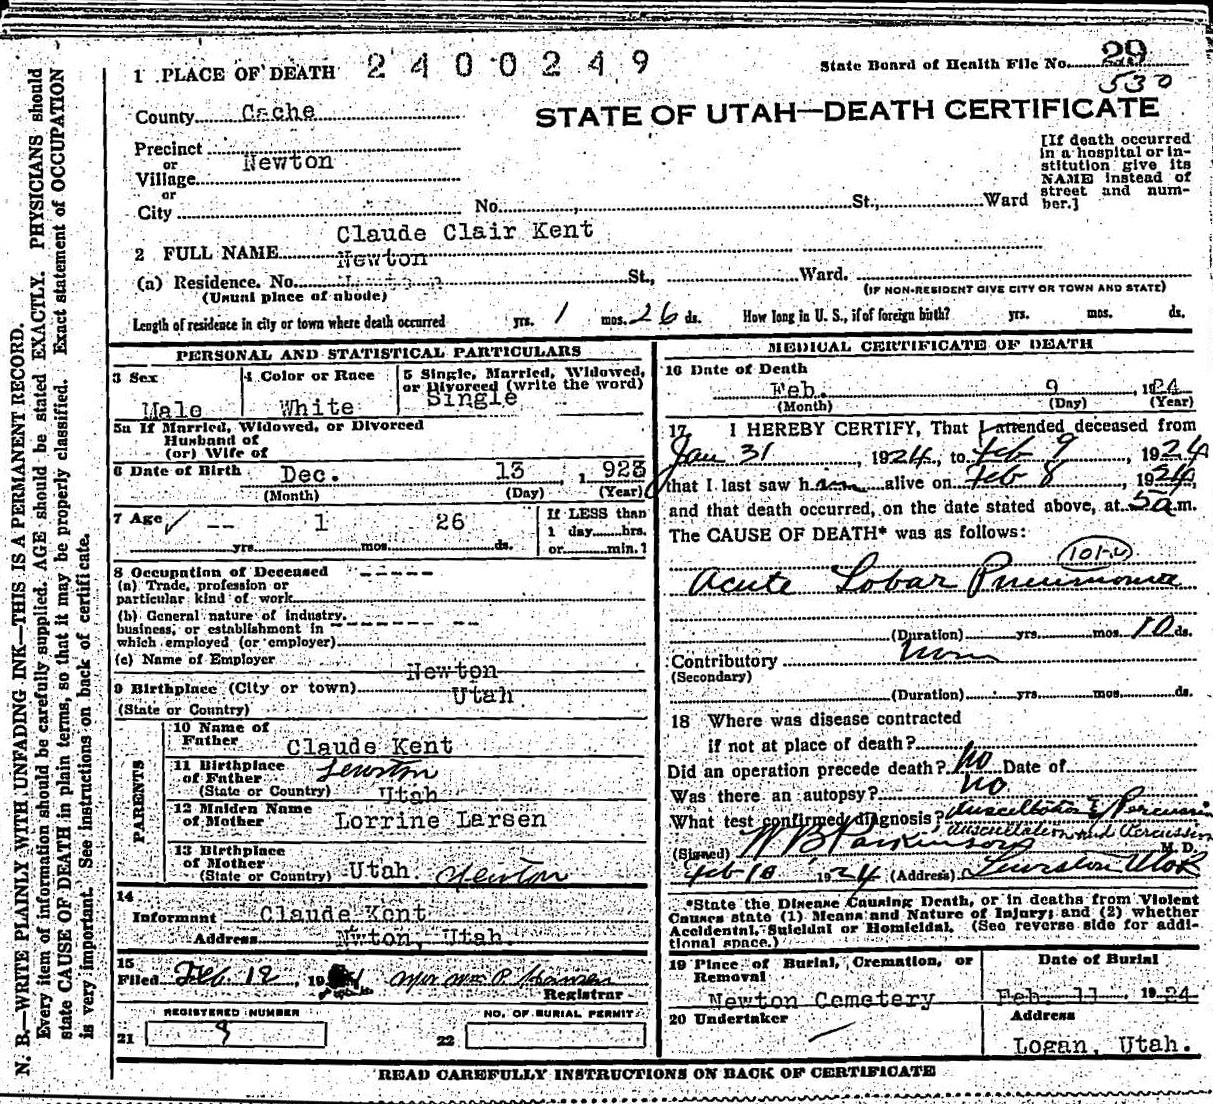 1 PLACE OF DEATH 2400249
State Board of Health File No. 29
530
County Cache
STATE OF UTAH—DEATH CERTIFICATE
Precinct
or Newton
Village
or
City No. St., Ward
[If death occurred
in a hospital or in-
stitution give its
NAME instead of
street and num-
ber.]
Claude Clair Kent
2 FULL NAME
Newton
(a) Residence. No. St., Ward.
(Usual place of abode) (IF NON-RESIDENT GIVE CITY OR TOWN AND STATE)
Length of residence in city or town where death occurred yrs. 1 mos. 26 ds. How long in U. S., if of foreign birth? yrs. mos. ds.
PERSONAL AND STATISTICAL PARTICULARS
3 Sex 4 Color or Race 5 Single, Married, Widowed,
or Divorced (write the word)
Male White Single
5a If Married, Widowed, or Divorced
Husband of
(or) Wife of
6 Date of Birth Dec. 13, 1923
(Month) (Day) (Year)
7 Age -- 1 26
yrs. mos. ds.
If LESS than
1 day hrs.
or min.?
8 Occupation of Deceased -----
(a) Trade, profession or
particular kind of work
(b) General nature of industry,
business, or establishment in
which employed (or employer)
(c) Name of Employer
Newton
9 Birthplace (City or town) Utah
(State or Country)
PARENTS
10 Name of
Father Claude Kent
11 Birthplace
of Father Lewiston
(State or Country) Utah
12 Maiden Name
of Mother Lorrine Larsen
13 Birthplace
of Mother
(State or Country) Utah. Newton
14
Informant Claude Kent
Address Nwton, Utah.
15
Filed Feb. 12, 19 Mrs Wm P. Hansen
Registrar
REGISTERED NUMBER NO. OF BURIAL PERMIT
21 9 22
MEDICAL CERTIFICATE OF DEATH
16 Date of Death
Feb. 9 1924
(Month) (Day) (Year)
17 I HEREBY CERTIFY, That I attended deceased from
Jan 31, 1924, to Feb 9, 1924
that I last saw him alive on Feb 8, 1924,
and that death occurred, on the date stated above, at 5a m.
The CAUSE OF DEATH* was as follows:
Acute Lobar Pneumonia
(Duration) yrs. mos. 10 ds.
Contributory None
(Secondary)
(Duration) yrs. mos. ds.
18 Where was disease contracted
if not at place of death?
Did an operation precede death? No Date of
Was there an autopsy? No
What test confirmed diagnosis? Auscultation & Percussion
Auscultation and Percussion
(Signed) W B Parkinson, M. D.
Feb 10, 1924 (Address) Lewiston Utah
*State the Disease Causing Death, or in deaths from Violent
Causes state (1) Means and Nature of Injury; and (2) whether
Accidental, Suicidal or Homicidal. (See reverse side for addi-
tional space.)
19 Place of Burial, Cremation, or
Removal
Date of Burial
Newton Cemetery Feb. 11, 1924
20 Undertaker Address
Logan, Utah.
READ CAREFULLY INSTRUCTIONS ON BACK OF CERTIFICATE
N. B.—WRITE PLAINLY WITH UNFADING INK—THIS IS A PERMANENT RECORD.
Every item of information should be carefully supplied. AGE should be stated EXACTLY. PHYSICIANS should
state CAUSE OF DEATH in plain terms, so that it may be properly classified. Exact statement of OCCUPATION
is very important. See instructions on back of certificate.